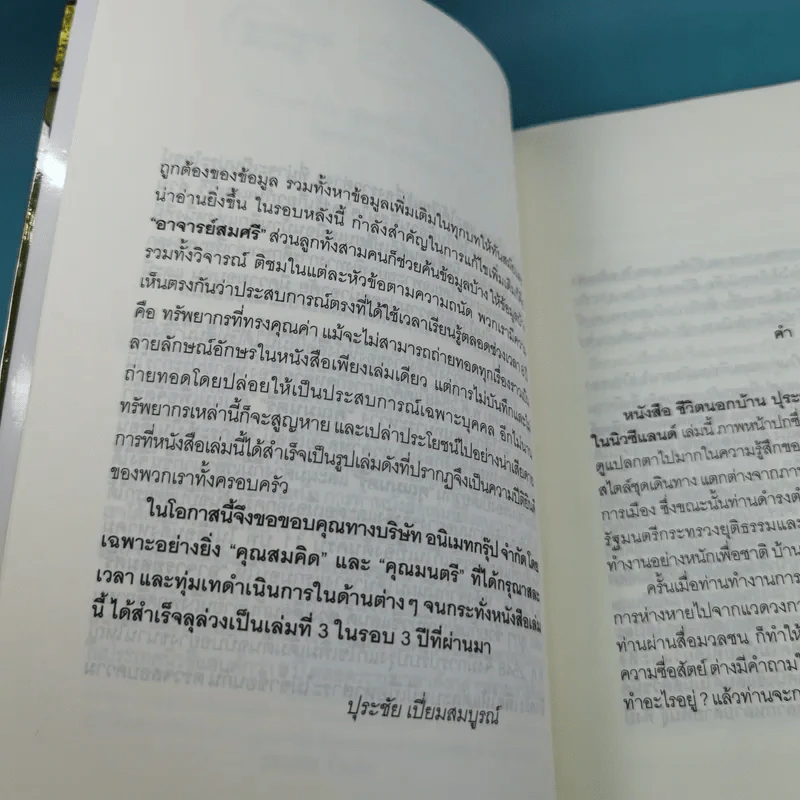 ถูกต้องของข้อมูล รวมทั้งหาข้อมูลเพิ่มเติมในทุกบทให้ทันสมัย
น่าอ่านยิ่งขึ้น ในรอบหลังนี้ กำลังสำคัญในการแก้ไขเพิ่มเติม
"อาจารย์สมศรี" ส่วนลูกทั้งสามคนก็ช่วยค้นข้อมูลบ้าง ให้ข้อมูลบ้าง
รวมทั้งวิจารณ์ ติชมในแต่ละหัวข้อตามความถนัด พวกเรามีความ
เห็นตรงกันว่าประสบการณ์ตรงที่ได้ใช้เวลาเรียนรู้ตลอดช่วงเวลา
คือ ทรัพยากรที่ทรงคุณค่า แม้จะไม่สามารถถ่ายทอดทุกเรื่องราวเป็น
ลายลักษณ์อักษรในหนังสือเพียงเล่มเดียว แต่การไม่บันทึกและ
ถ่ายทอดโดยปล่อยให้เป็นประสบการณ์เฉพาะบุคคล อีกไม่นาน
ทรัพยากรเหล่านี้ก็จะสูญหาย และเปล่าประโยชน์ไปอย่างน่าเสียดาย
การที่หนังสือเล่มนี้ได้สำเร็จเป็นรูปเล่มดังที่ปรากฏจึงเป็นความปิติยินดี
ของพวกเราทั้งครอบครัว
ในโอกาสนี้จึงขอขอบคุณทางบริษัท อนิเมทกรุ๊ป จำกัด โดย
เฉพาะอย่างยิ่ง "คุณสมคิด" และ "คุณมนตรี" ที่ได้กรุณาสละ
เวลา และทุ่มเทดำเนินการในด้านต่างๆ จนกระทั่งหนังสือเล่ม
นี้ ได้สำเร็จลุล่วงเป็นเล่มที่ 3 ในรอบ 3 ปีที่ผ่านมา
ปุระชัย เปี่ยมสมบูรณ์
คำ
หนังสือ ชีวิตนอกบ้าน ปุระ
ในนิวซีแลนด์ เล่มนี้ ภาพหน้าปกซึ่
ดูแปลกตาไปมากในความรู้สึกของ
สไตล์ชุดเดินทาง แตกต่างจากภาร
การเมือง ซึ่งขณะนั้นท่านดำรงตำ
รัฐมนตรีกระทรวงยุติธรรมและ
ทำงานอย่างหนักเพื่อชาติ บ้าน
ครั้นเมื่อท่านทำงานการ
การห่างหายไปจากแวดวงกา
ท่านผ่านสื่อมวลชน ก็ทำให้
ความซื่อสัตย์ ต่างมีคำถามใ
ทำอะไรอยู่ ? แล้วท่านจะก